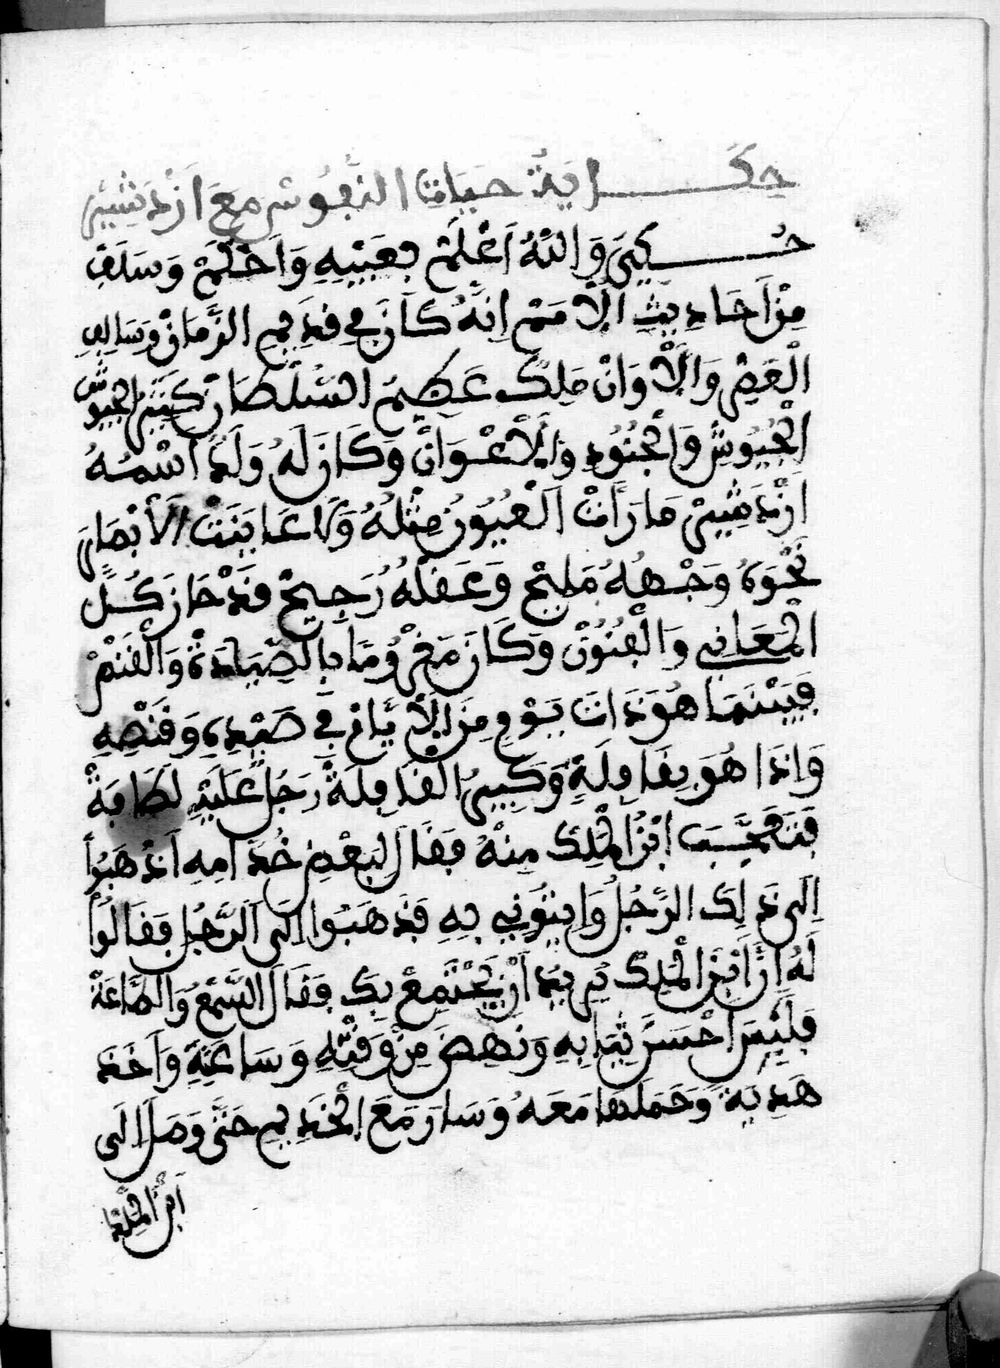 حكاية حيات النفوس مع ازدشير
حُكِيَ وَاللهُ اَعْلَمُ بِغَيْبِهِ وَاَحْكَمْ وَسَلَفَ
مِنْ اَحَادِيثِ الْاُمَمْ اِنَّهُ كَانَ فِي قَدِيمِ الزَّمَانْ وَسَالِفِ
الْعَصْرِ وَالْاَوَانْ مَلِكْ عَظِيمُ السُّلْطَانْ كَثِيرُ الجيوش
الْجُيُوشْ وَالْجُنُودِ وَالْاَعْوَانْ وَكَانَ لَهُ وَلَدٌ اسْمُهُ
اَزْدَشِيرْ مَا رَاَتْ الْعُيُونُ مِثْلَهُ وَلَا عَايَنَتْ الْاَبْصَارَ
نَحْوَهُ وَجْهُهُ مَلِيحْ وَعَقْلُهُ رَجِيحْ قَدْ حَازَ كُلَّ
الْمَعَانِي وَالْفُنُونْ وَكَانَ مَغْرُومًا بِالصِّيَادَةْ وَالْقَنَصْ
فَبَيْنَمَا هُوَ ذَاتَ يَوْمٍ مِنَ الْاَيَّامْ فِي صَيْدِهِ وَقَنْصِهِ
وَاِذَا هُوَ بِقَافِلَةٍ وَكَبِيرُ الْقَافِلَةْ رَجُلٌ عَلَيْهِ لَطَافَةْ
فَتَعَجَّبَ ابْنُ الْمَلِكْ مِنْهُ فَقَالَ لِبَعْضِ خُدَّامِهِ اَذْهَبُوا
اِلَى ذَلِكَ الرَّجُلْ وَايتُونِي بِهِ فَذَهَبُوا اِلَى الرَّجُلِ فَقَالُوا
لَهُ اِنَّ ابْنَ الْمَلِكْ يُرِيدُ اَنْ يَجْتَمِعْ بِكَ فَقَالَ السَّمْعُ وَالطَّاعَةْ
فَلَبِسَ اَحْسَنَ ثِيَابِهِ وَنَهَضَ مِنْ وَقْتِهِ وَسَاعَتِهِ وَاَخَذَ
هَدِيَةً وَحَمَلَهَا مَعَهُ وَسَارَ مَعَ الْخَدِيمِ حَتَّى وَصَلَ اِلَى
ابْنِ الْمَلِكْ